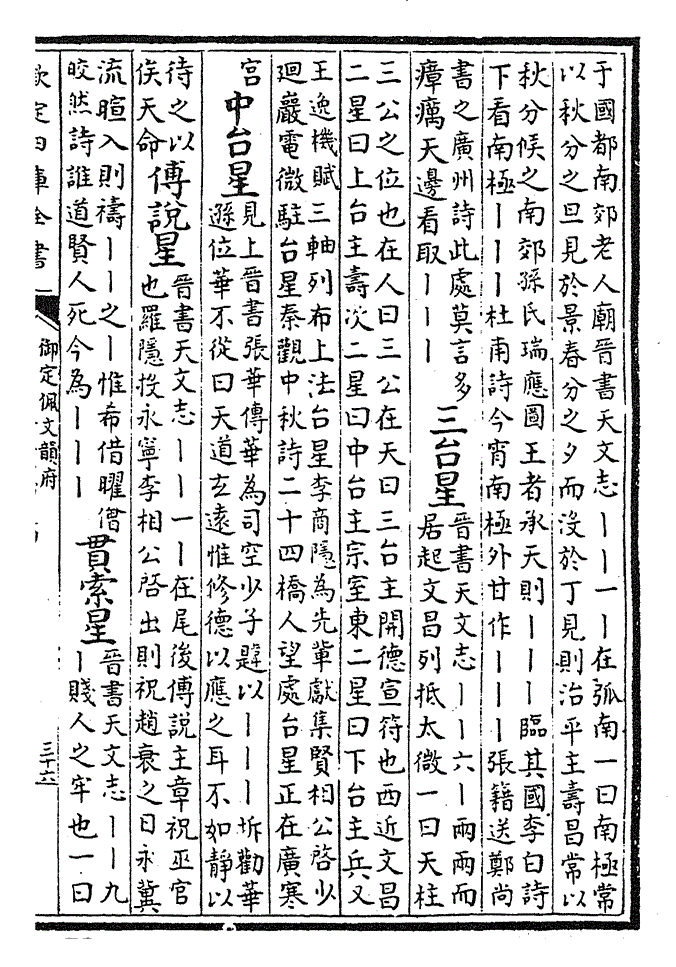 于國都南郊老人廟晉書天文志｜｜一｜在弧南一曰南極常
以秋分之旦見於景春分之夕而没於丁見則治平主壽昌常以
秋分候之南郊孫氏瑞應圖王者承天則｜｜｜臨其國李白詩
下看南極｜｜｜杜甫詩今宵南極外甘作｜｜｜張籍送鄭尚
書之廣州詩此處莫言多
瘴癘天邊看取｜｜｜
三台星
晉書天文志｜｜六｜兩兩而
居起文昌列抵太微一曰天柱
三公之位也在人曰三公在天曰三台主開德宣符也西近文昌
二星曰上台主壽次二星曰中台主宗室東二星曰下台主兵又
王逸機賦三軸列布上法台星李商隱為先輩獻集賢相公啓少
廻嚴電微駐台星秦觀中秋詩二十四橋人望處台星正在廣寒
宮
中台星
見上晉書張華傳華為司空少子韙以｜｜｜坼勸華
遜位華不從曰天道玄遠惟修德以應之耳不如靜以
待之以
俟天命
傅說星
晉書天文志｜｜一｜在尾後傅說主章祝巫官
也羅隱投永寧李相公啓出則祝趙衰之日永冀
流暄入則禱｜｜之｜惟希借曜僧
皎然詩誰道賢人死今為｜｜｜
貫索星
晉書天文志｜｜九
｜賤人之牢也一曰
欽定四庫全書
御定佩文韻府
三十六